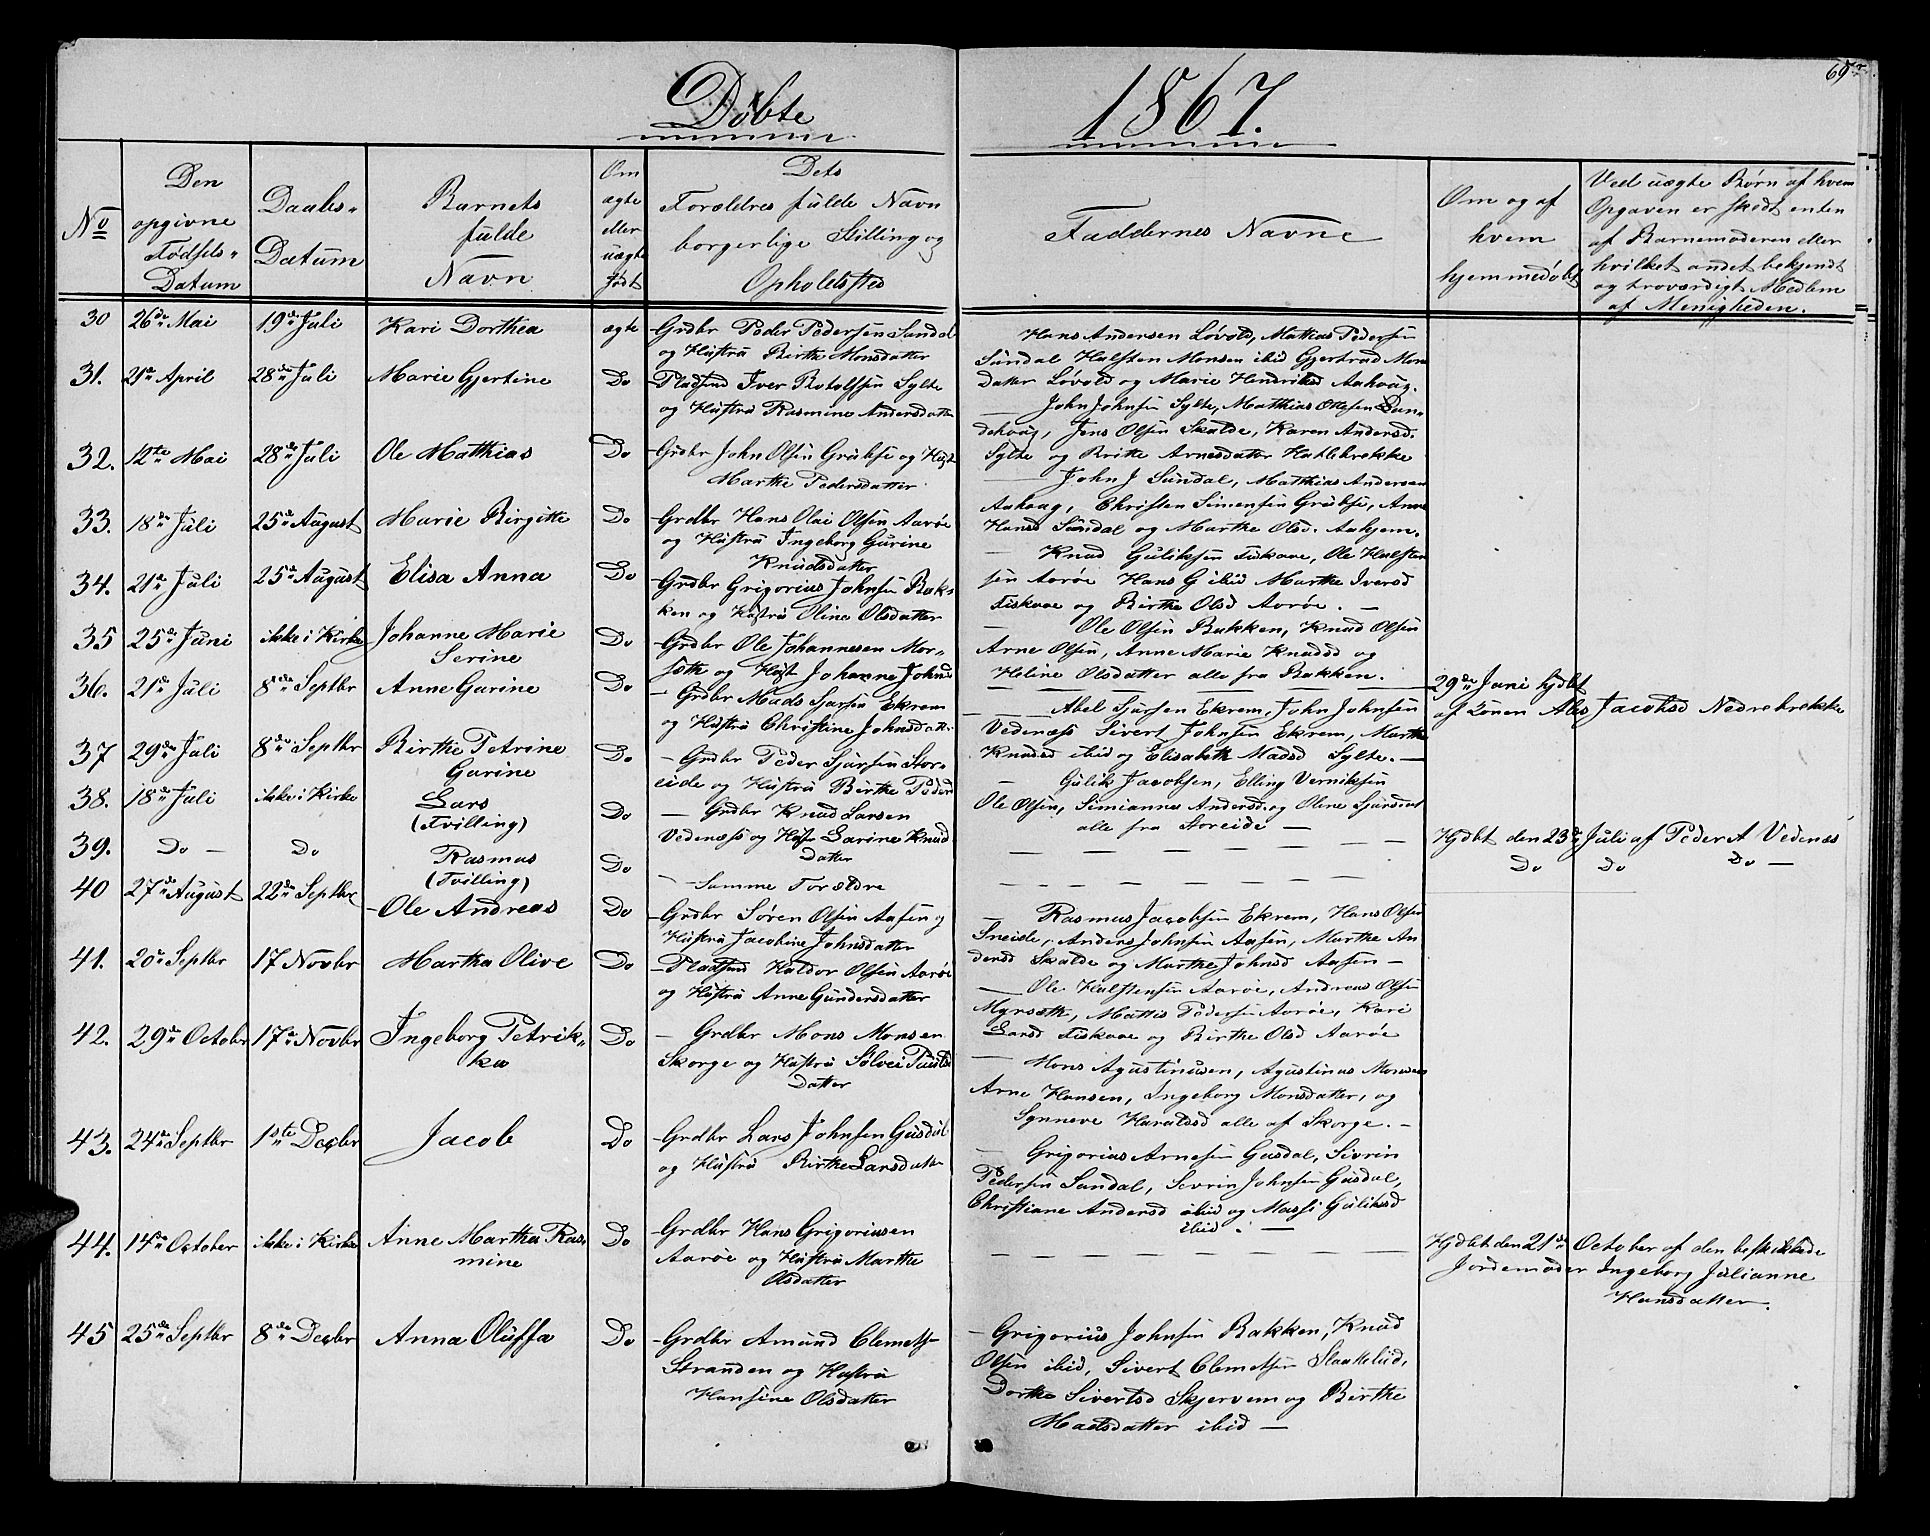 Døbte 1867.
69
No
Den opgivne Fødsels-Datum
Daabs-Datum
Barnets fulde Navn
Om ægte eller uægte født
Dets Forældres fulde Navn borgerlige Stilling og Opholdsted
Faddernes Navne
Om og af hvem hjemmedøbt
Ved uægte Børn af hvem Opgaven er skedt enten af Barnemoderen eller hvilket andet bekjendt og troværdigt Medlem af Menigheden.
30 26de Mai 19de Juli Kari Dorthea ægte Grdbr Peder Pedersen Sundal
og Hustru Birthe Monsdatter
Hans Andersen Løvold, Mathias Pedersen
Sundal Halsten Monsen ibid Gjertrud Mons
datter Løvold og Marie Hendriksd Aahvag.
31. 21de April 28de Juli Marie Gjertine Do Pladsmd Iver Rotolfsen Sylte
og Hustru Rasmine Andersdatter
John Johnsen Sylte, Matthias Ottesen San-
dehvag, Jens Olsen Skalde, Karen Andersd.
Sylte og Brithe Arnesdatter Hatlebrekke
32. 12te Mai 28de Juli Ole Matthias Do Grdbr John Olsen Grubse og Hust
Marthe Pedersdatter
John J Sundal, Matthias Andersen
Aahvag, Christen Simensen Grubse, Anne
Hansd Sundal og Marthe Olsd. Aahjem.
33. 18de Juli 25de August Marie Birgitte Do Grdbr Hans Olai Olsen Aarøe
og Hustru Ingeborg Gurine
Knudsdatter
Knud Guliksen Fiskaae, Ole Halsten
sen Aarøe Hans G ibid Marthe Iversd
Fiskaae og Birthe Olsd Aarøe. —
34. 21de Juli 25de August Elisa Anna Do Grdbr Grigorius Johnsen Bak-
ken og Hustru Oline Olsdatter
Ole Olsen Bakken, Knud Olsen
Arne Olsen, Anne Marie Knudsd og
Heline Olsdatter alle fra Bakken.
35 25de Juni ikke i Kirke Johanne Marie
Serine Do Grdbr Ole Johannesen Mor-
sæth og Hust Johanne Johnsd
29de Juni hjdbt
af Konen Ales Jacobsd Nedrebrekke
36. 21de Juli 8de Septbr Anne Gurine Do Grdbr Mads Sjursen Ekrem
og Hustru Christine Johnsdatt.
Abel Sjursen Ekrem, John Johnsen
Vedenæss Sivert Johnsen Ekrem, Marthe
Knudsd ibid og Elisabeth Madsd Sylte. —
37 29de Juli 8de Septbr Birthe Petrine
Gurine Do Grdbr Peder Sjursen Stor-
eide og Hustru Birthe Pedersd
Gulik Jacobsen, Elling Verniksen
Ole Olsen, Simianne Andersd. og Oline Sjursdat
alle fra Storeide —
38. 18de Juli ikke i Kirke Lars
(Tvilling) Do Grdbr Knud Larsen
Vedenæss og Hustr Larine Knud
datter
Hjdbt den 23de Juli af Peder A Vedenæs
39. Do — Do Rasmus
(Tvilling) Do Samme Forældre
Do Do Do —
40 27de August 22de Septbr Ole Andreas Do Grdbr Søren Olsen Aasen og
Hustru Jacobine Johnsdatter
Rasmus Jacobsen Ekrem, Hans Olsen
Sneide, Anders Johnsen Aasen, Marthe An
dersd Skalde og Marthe Johnsd Aasen —
41. 20de Septbr 17 Novbr Martha Olive Do Pladsmd Haldor Olsen Aarøe
og Hustru Anne Gundersdatter
Ole Halstensen Aarøe, Andreas Olsen
Myrsæth, Mattis Pedersen Aarøe, Kari
Larsd Fiskaae og Birthe Olsd Aarøe
42. 29de October 17de Novbr Ingeborg Petrik-
ka Do Grdbr Mons Monsen
Skorge og Hustru Sølvei
Datter
Mons Agustinusen, Agustinus Monsen
Arne Hansen, Ingeborg Monsdatter, og
Synneve Haraldsd alle af Skorge. —
43. 24de Septbr 1ste Decbr Jacob Do Grdbr Lars Johnsen Gusdal
og Hustru Birthe Larsdatter
Grigorius Arnesen Gusdal, Sivrin
Pedersen Sundal, Sevrin Johnsen Gusdal,
Christiane Andersd ibid og Massi Guliksd
ibid. —
44. 14de October ikke i Kirke Anne Martha Ras-
mine Do Grdbr Hans Grigoriusen
Aarøe og Hustru Marthe
Olsdatter
Hjdbt den 21de October af den beskikkede
Jordemoder Ingeborg Julianne
Hansdatter.
45 25de Septbr 8de Decbr Anna Oluffa Do Grdbr Amund Clemetsen
Stranden og Hustru
Hansine Olsdatter
Grigorius Johnsen Bakken, Knud
Olsen ibid, Sivert Clemetsen Slaakelid,
Dorthe Sivertsd Skjervem og Birthe
Madsdatter ibid —